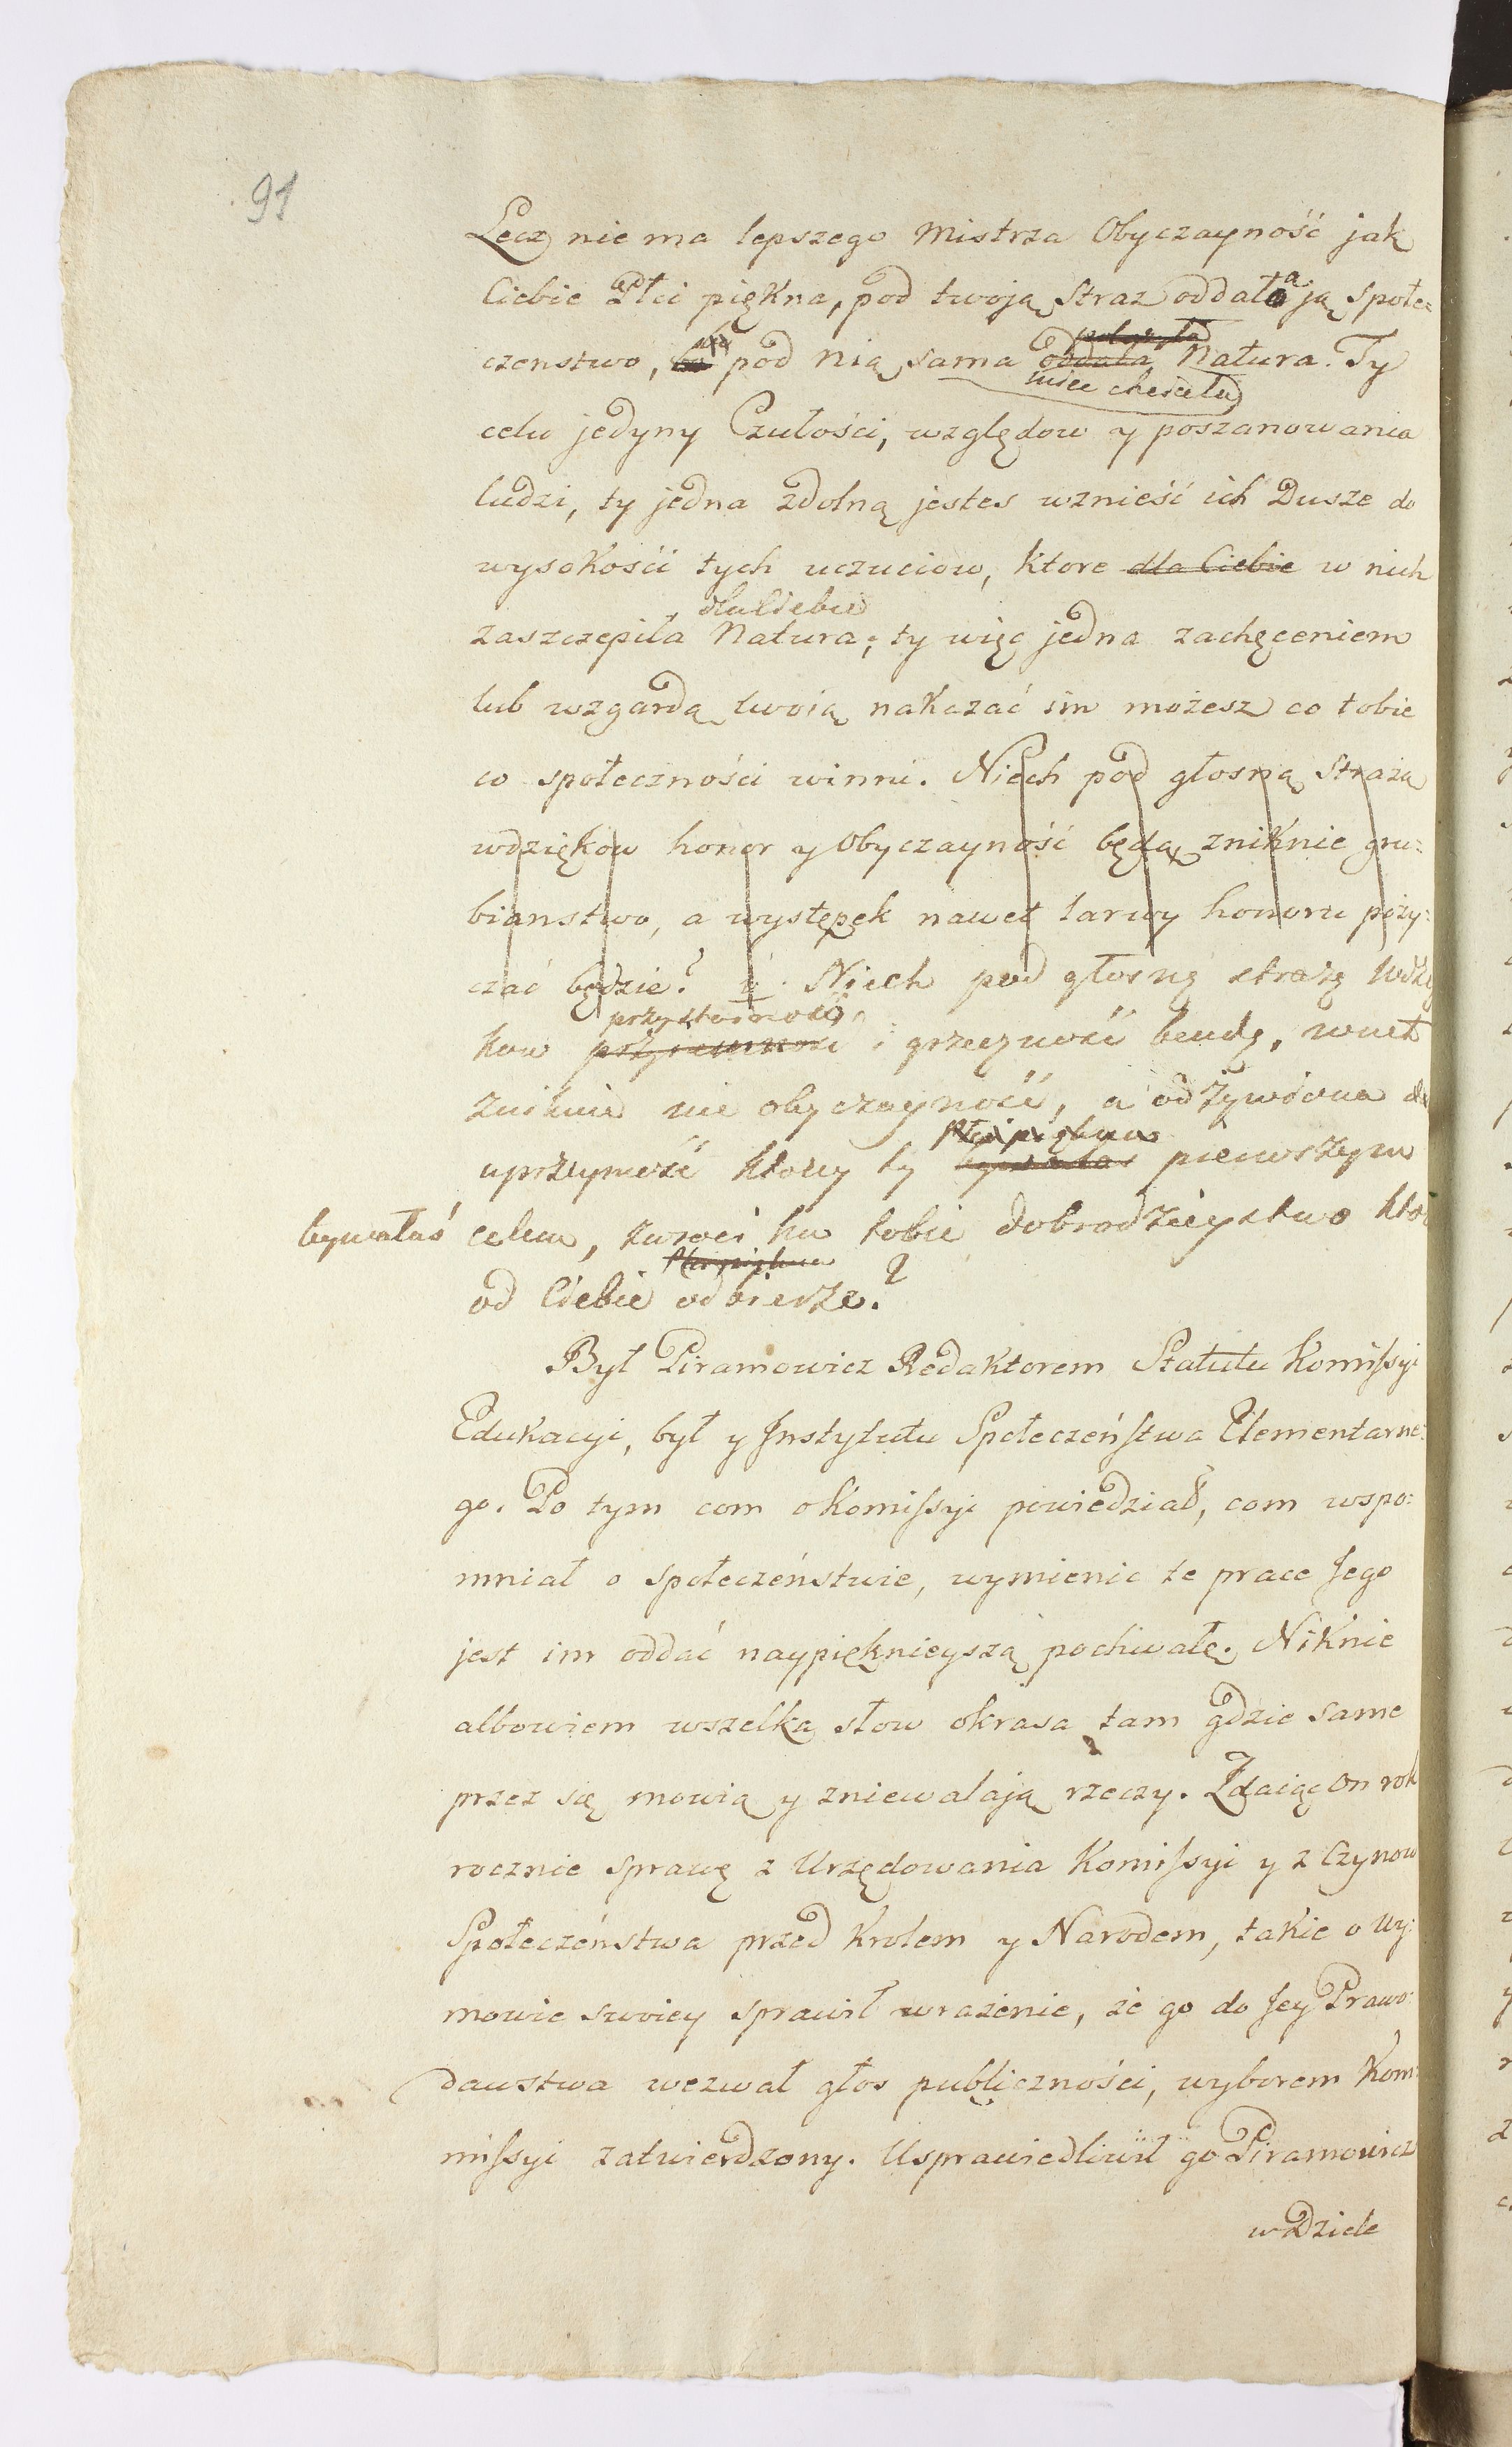 91
Lecz nie ma lepszego Mistrza Obyczayność jak
Ciebie Płci piękna, pod twoją straz oddała ją społe=
czenstwo, pod nią sama oddała Natura. Ty
miec chciała
celu jedyny Czułości, względow y poszanowania
ludzi, ty jedna zdolną jestes wznieść ich Dusze do
wysokości tych uczuciow, ktore dla Ciebie w nich
dla Ciebie
zaszczepiła Natura; ty więc jedna zachęceniem
lub wzgardą twoią nakazać im możesz co tobie
co społeczności winni. Niech pod głosną strażą
wdziękow honor y Obyczayność będą, zniknie gru=
bianstwo, a występek nawet larwy honoru poży=
czać będzie? Niech pod głosną strażą wdzię
przystoiność
kow i grzeczność bendą, wnet
zniknie nie obyczayność, a odżywiona
Płci piękna
uprzeymość ktorey ty bywałas pierwszym
bywałaś celem, zwroci ku tobie dobrodzieystwo kto
Płci piękna
od Ciebie odbierze?
Był Piramowicz Redaktorem Statutu Komissyi
Edukacyi, był y Instytutu Społeczeństwa Elementarne=
go. Po tym com o Komissyi powiedział, com wspo=
mniał o społeczeństwie, wymienic te prace Jego
jest im oddać naypięknieyszą pochwałę. Niknie
albowiem wszelka słow okrasa tam gdzie same
przez się mowią y zniewalają rzeczy. Zdaiąc On rok
rocznie sprawę z Urzędowania Komissyi y z Czynow
Społeczeństwa przed Krolem y Narodem, takie o wy=
mowie swoiey sprawił wrażenie, że go do Jey Prawo=
dawstwa wezwał głos publiczności, wyborem Kom=
missyi zatwierdzony. Usprawiedliwił go Piramowicz
w Dziele